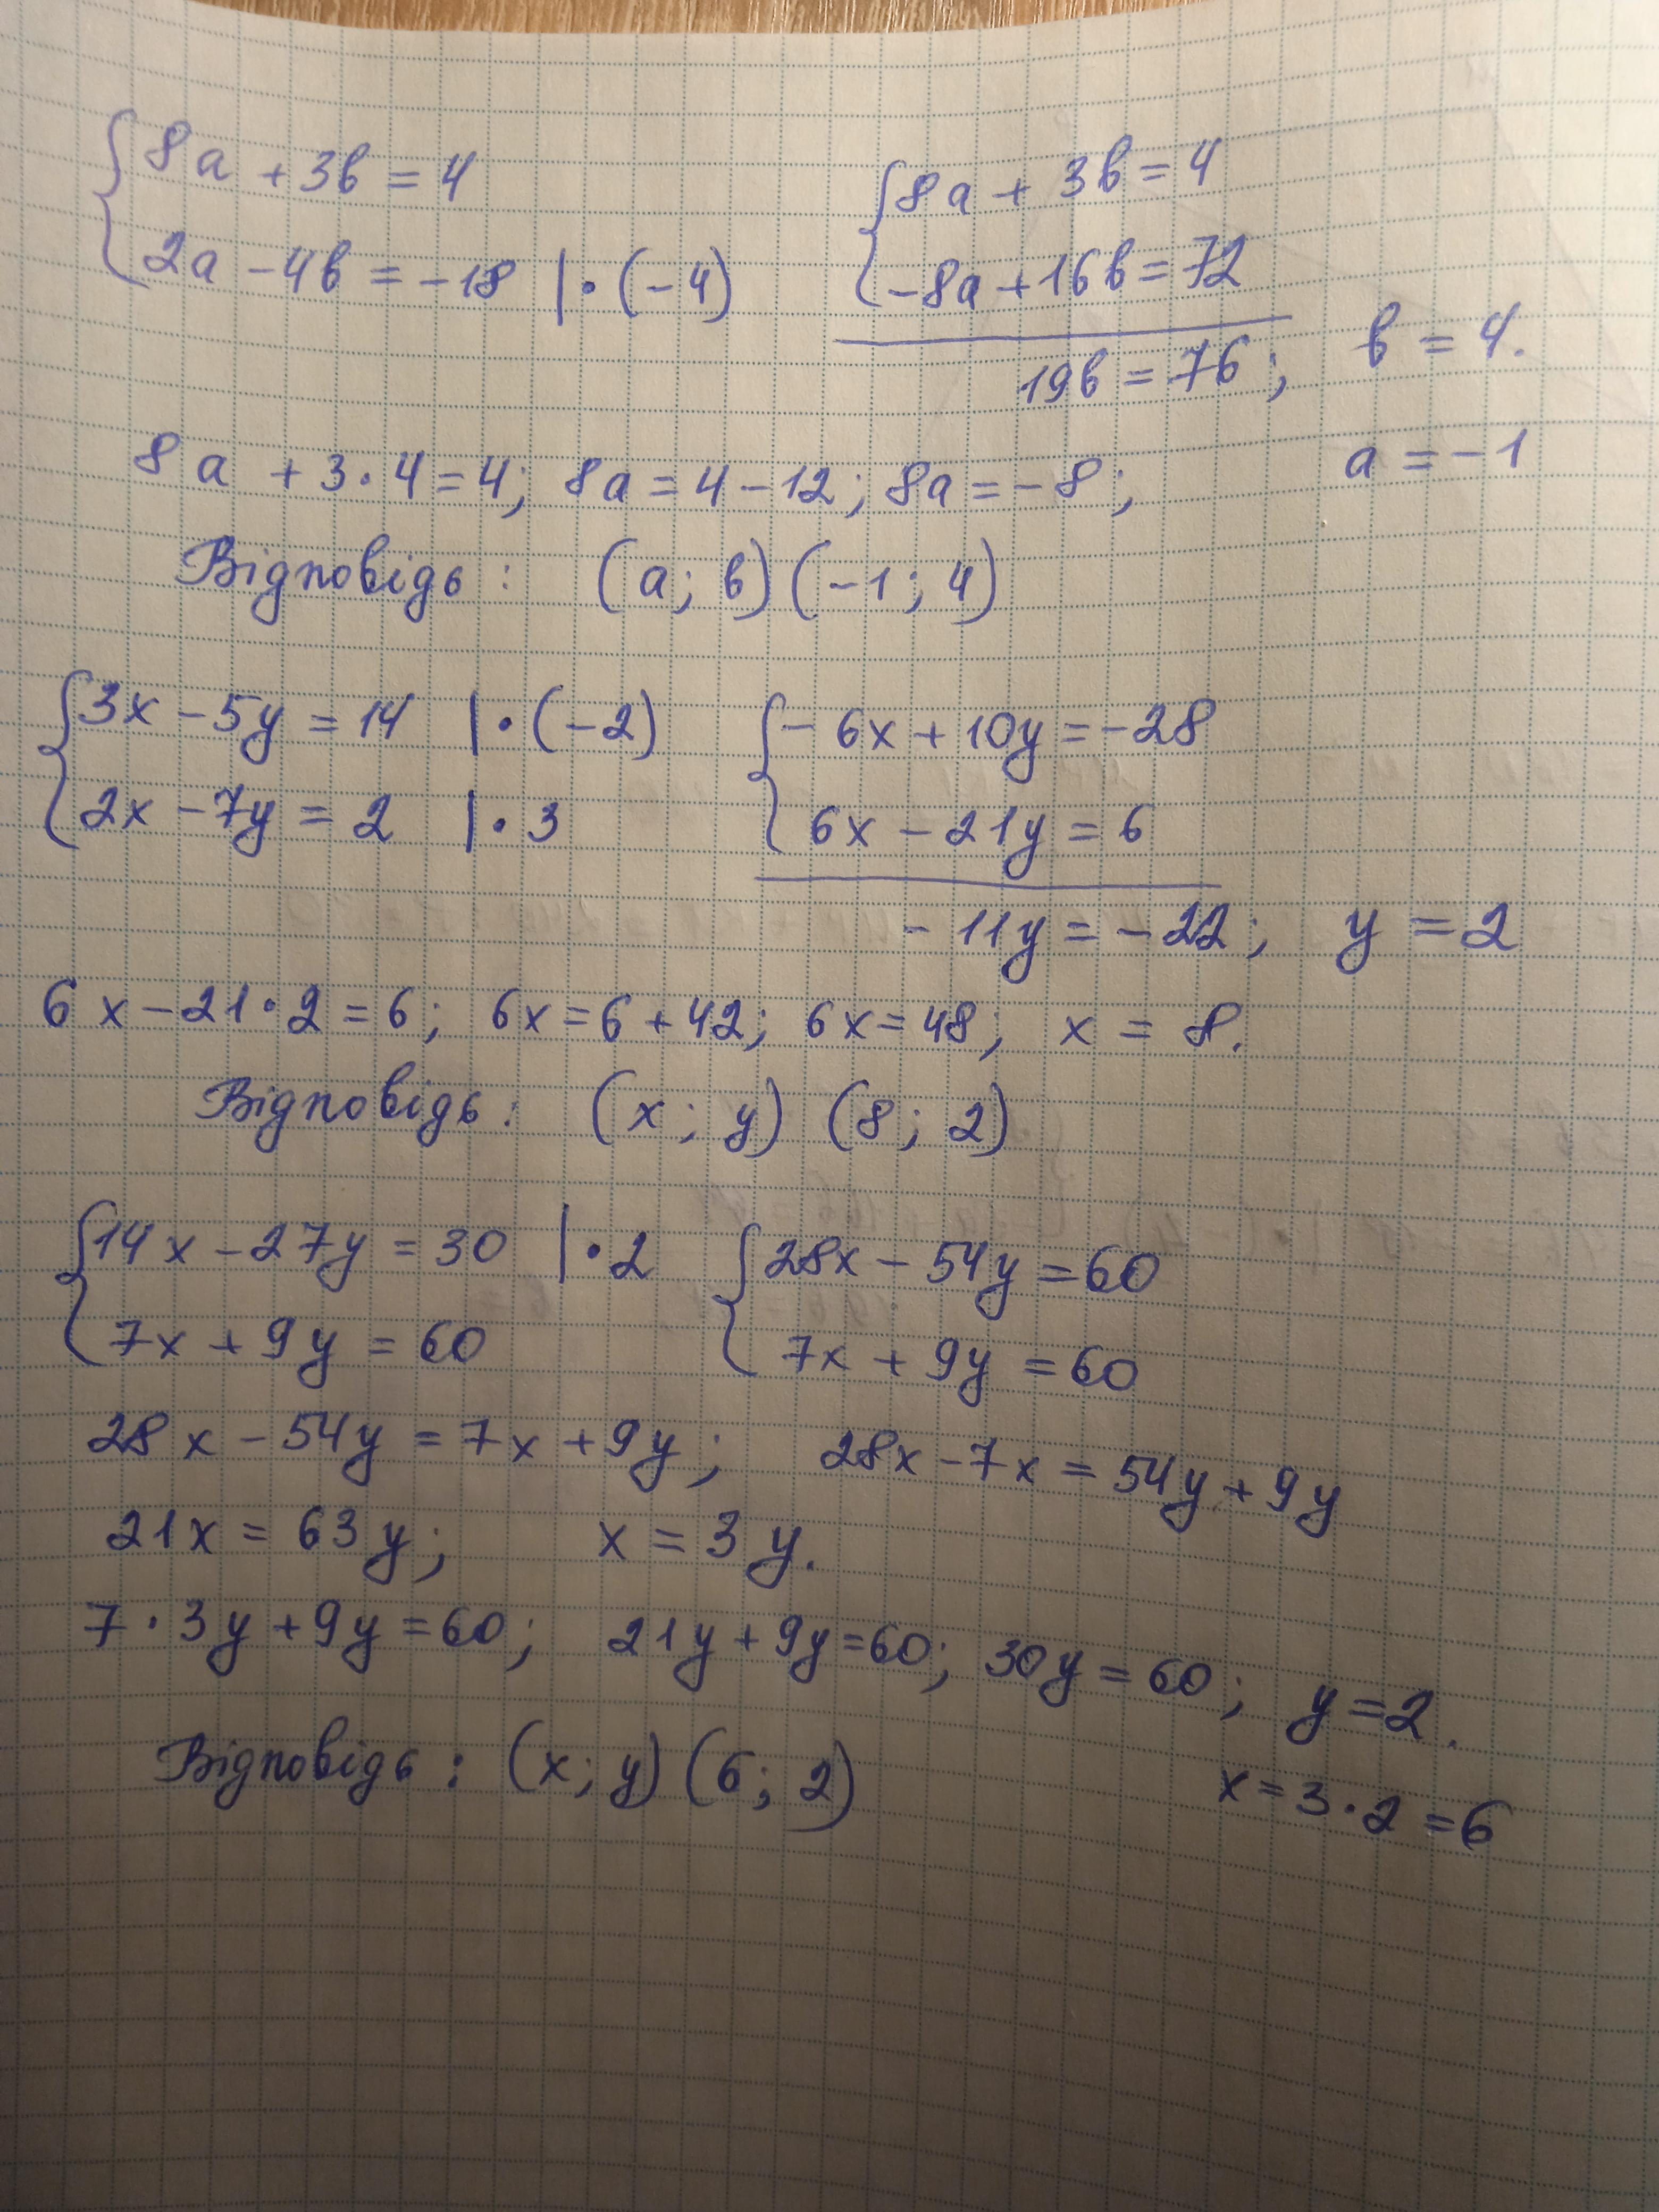 { 8a + 3b = 4
2a - 4b = -18 | · (-4)
{ 8a + 3b = 4
-8a + 16b = 72
19b = 76; b = 4.
8a + 3·4 = 4; 8a = 4 - 12; 8a = -8; a = -1
Відповідь: (a; b) (-1; 4)
{ 3x - 5y = 14 | · (-2)
2x - 7y = 2 | · 3
{ - 6x + 10y = -28
6x - 21y = 6
- 11y = -22; y = 2
6x - 21·2 = 6; 6x = 6 + 42; 6x = 48; x = 8.
Відповідь: (x; y) (8; 2)
{ 14x - 27y = 30 | · 2
7x + 9y = 60
{ 28x - 54y = 60
7x + 9y = 60
28x - 54y = 7x + 9y; 28x - 7x = 54y + 9y
21x = 63y; x = 3y.
7·3y + 9y = 60; 21y + 9y = 60; 30y = 60; y = 2.
x = 3·2 = 6
Відповідь: (x; y) (6; 2)